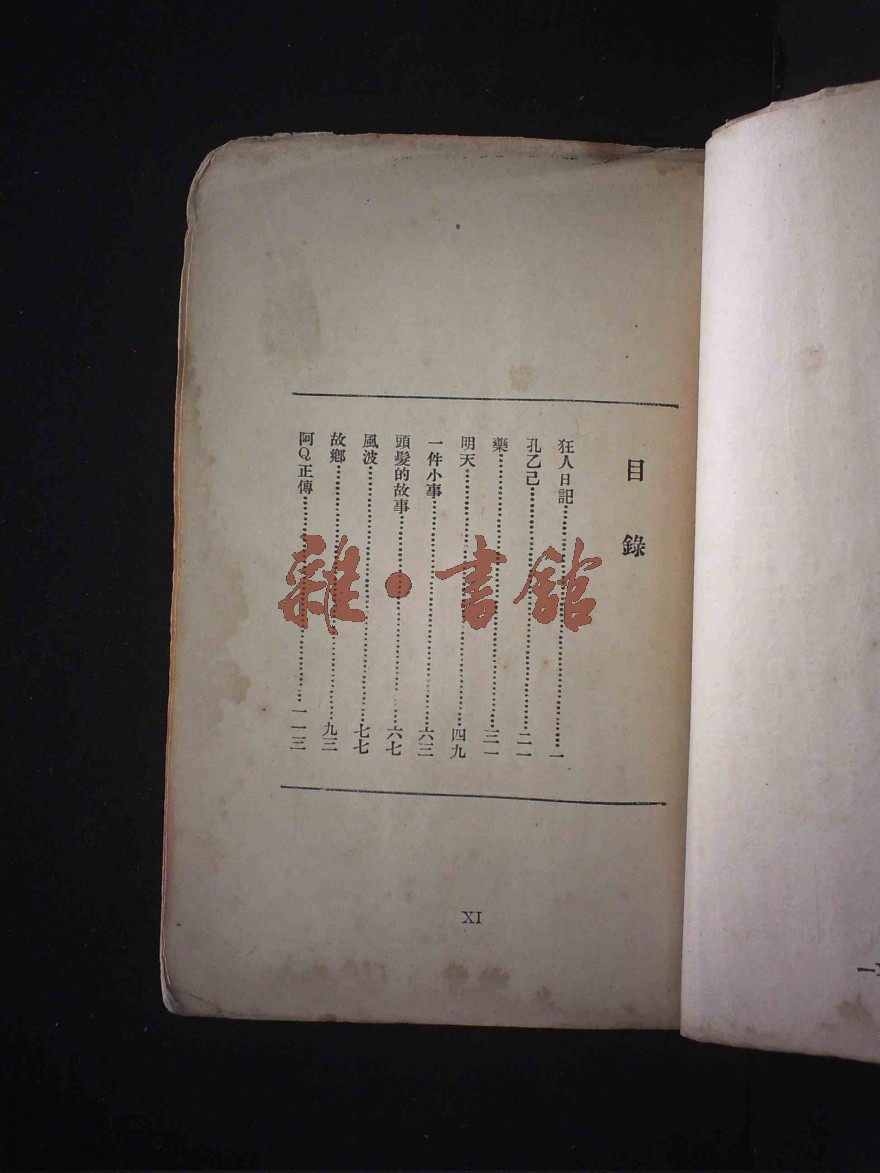 目錄
狂人日記……一
孔乙己……二一
藥……三一
明天……四九
一件小事……六三
頭髮的故事……六七
風波……七七
故鄉……九三
阿Q正傳……一一三
XI
雜·書館